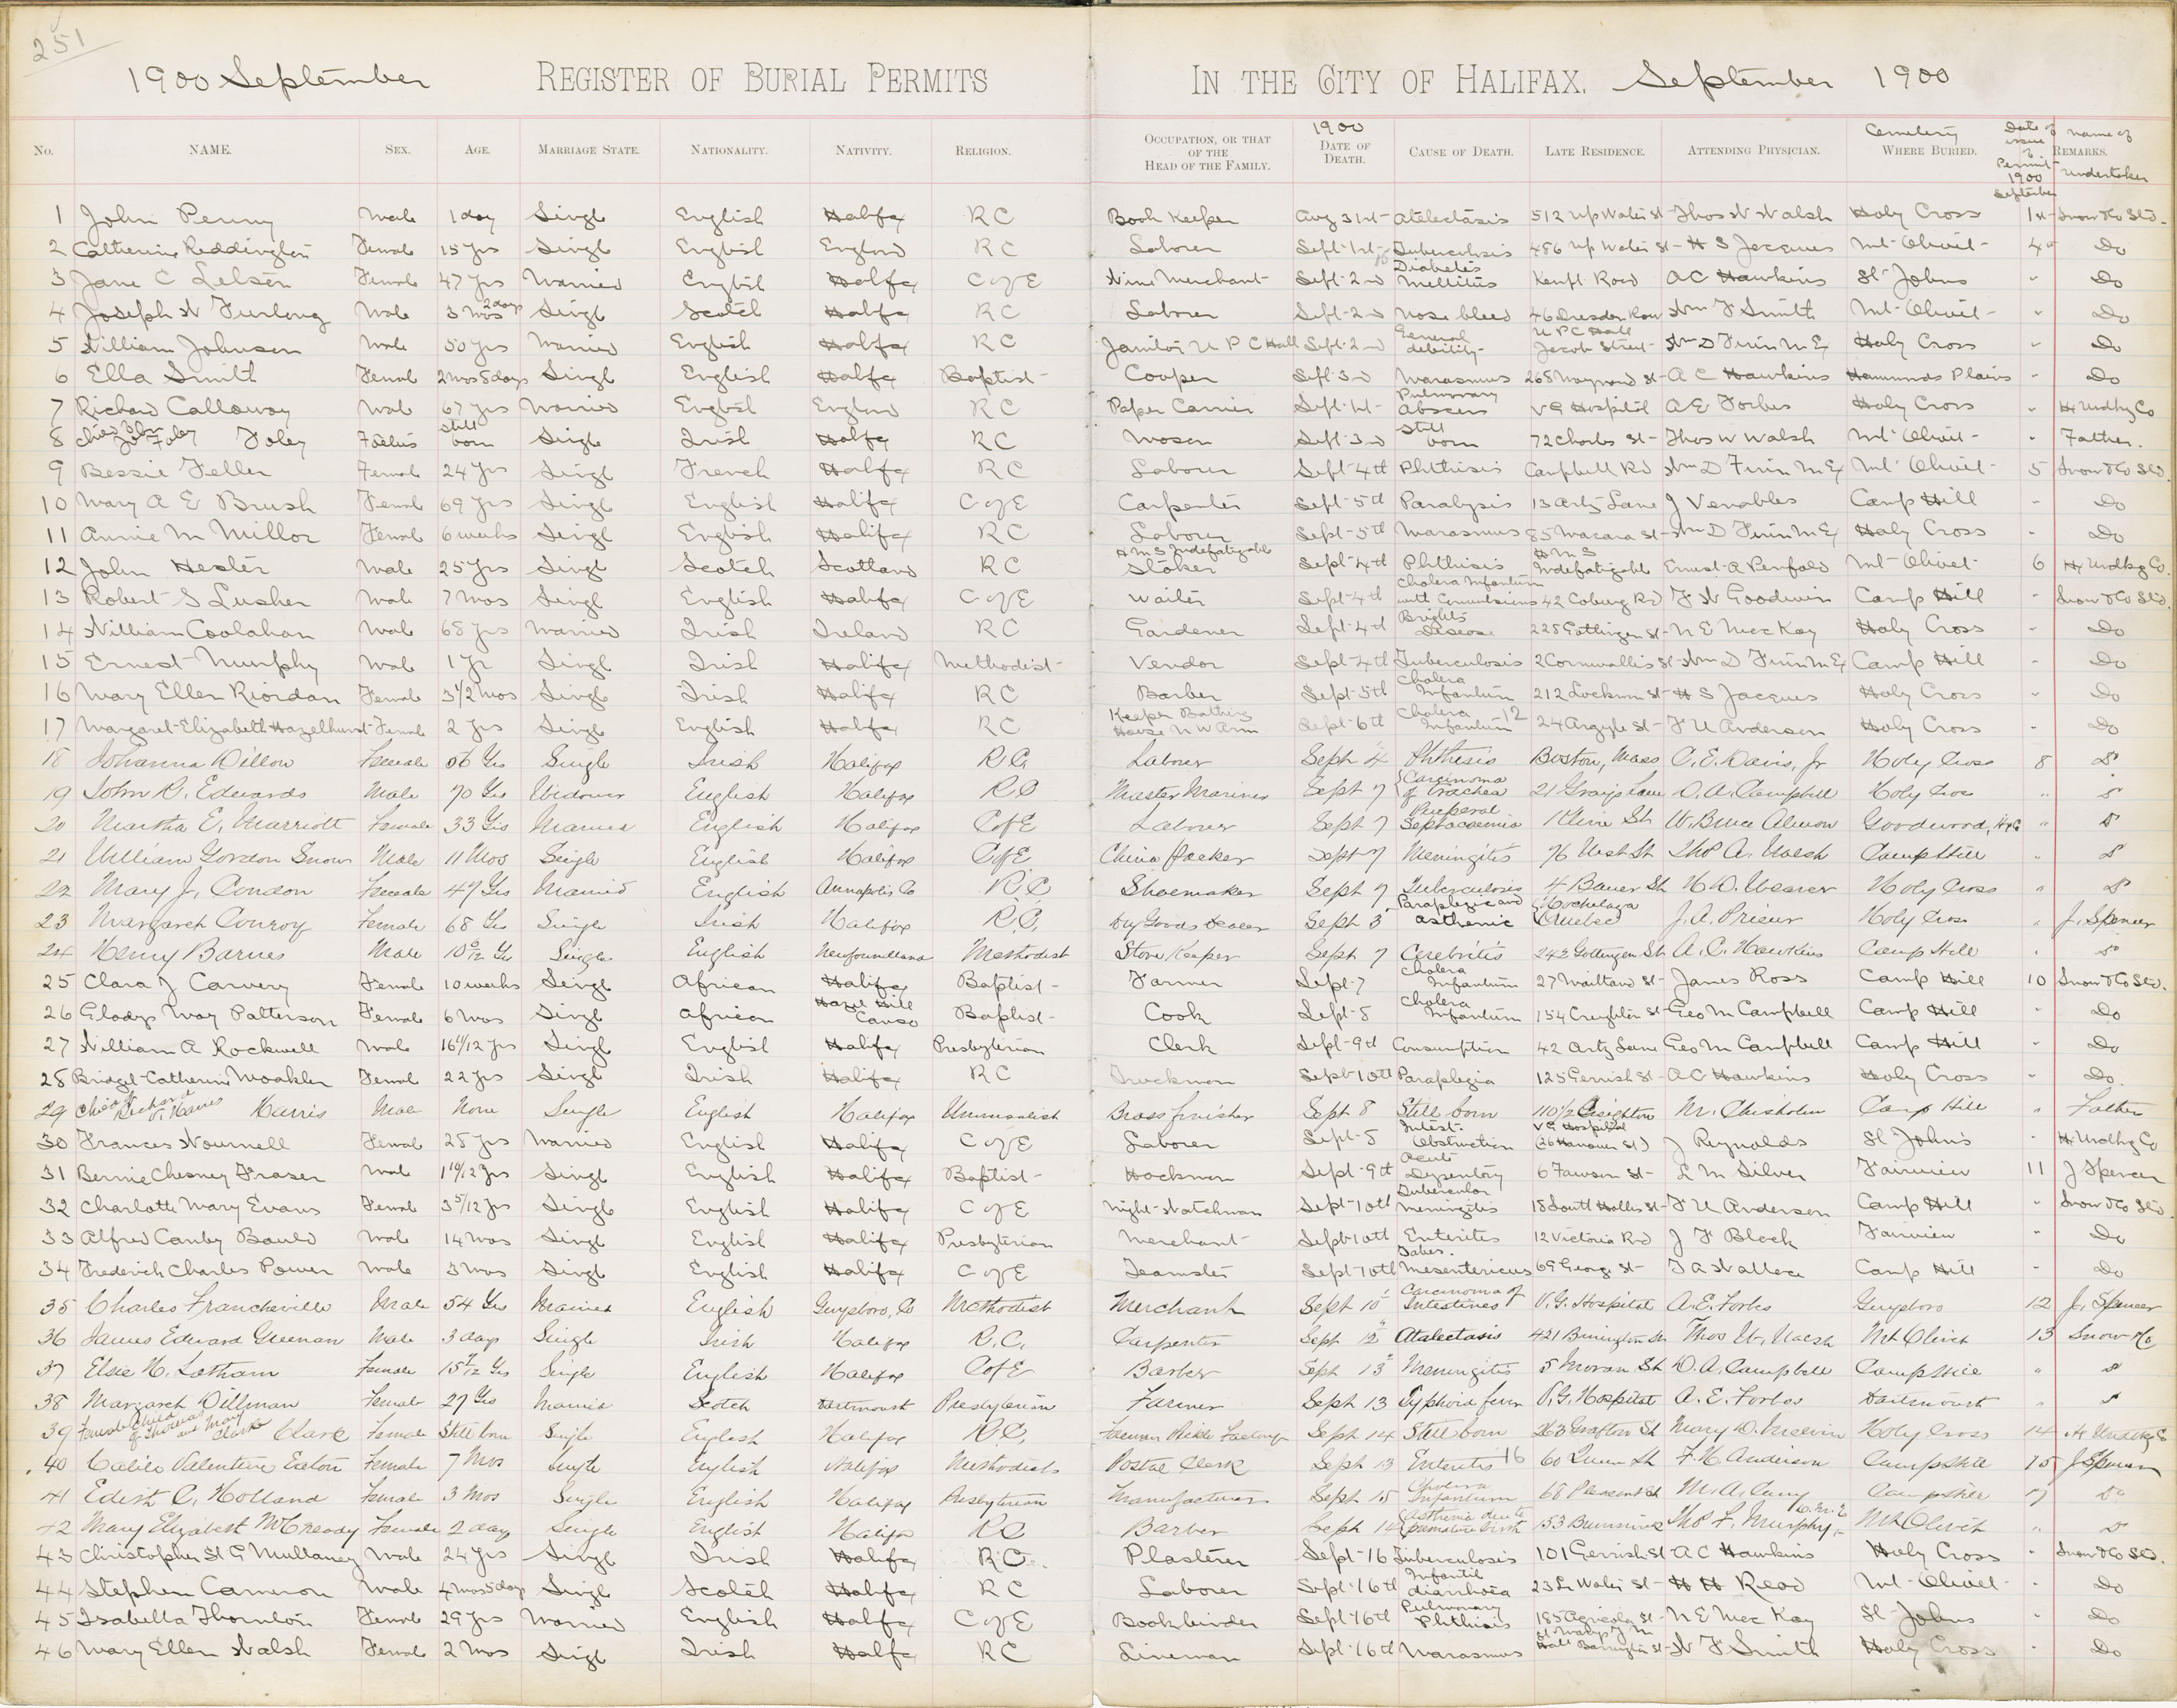 251
1900 September REGISTER OF BURIAL PERMITS IN THE CITY OF HALIFAX. September 1900
No. NAME. SEX. AGE. MARRIAGE STATE. NATIONALITY. NATIVITY. RELIGION. OCCUPATION, OR THAT OF THE HEAD OF THE FAMILY. 1900 DATE OF DEATH. CAUSE OF DEATH. LATE RESIDENCE. ATTENDING PHYSICIAN. Cemetery WHERE BURIED. Date of issue of Permit 1900 September Name of REMARKS. Undertaker
1 John Penny Male 1 day Single English Halifax RC Book Keeper Aug 31st Atelectasis 512 Up Water St Thos W Walsh Holy Cross 1st Snow & Co Ltd.
2 Catherine Reddington Female 15 yrs Single English England RC Laborer Sept 1st Tuberculosis 486 Up Water St H S Jacques Mt Olivet 4 Do
3 Jane C Female 47 yrs Married English Halifax C of E Wine Merchant Sept 2nd Diabetes Mellitus Kempt Road A C Hawkins St Johns " Do
4 Joseph W Furlong Male 3 mos 2 days Single Scotch Halifax RC Laborer Sept 2nd Nose bleed 46 Dresden Row Wm F Smith Mt Olivet " Do
5 William Johnson Male 50 yrs Married English Halifax RC Janitor U P C Hall Sept 2nd General debility U P C Hall Jacob Street Wm D Finn M Ex Holy Cross " Do
6 Ella Smith Female 2 mos 8 days Single English Halifax Baptist Cooper Sept 3rd Marasmus 268 Maynard St A C Hawkins Hammonds Plains " Do
7 Richard Calloway Male 67 yrs Married English England RC Paper Carrier Sept 1st Pulmonary Abscess V G Hospital A E Forbes Holy Cross " Hx Undkg Co
8 Child John Foley Foley Foetus Still born Single Irish Halifax RC Mason Sept 3rd Still born 72 Charles St Thos W Walsh Mt Olivet " Father.
9 Bessie Feller Female 24 yrs Single French Halifax RC Laborer Sept 4th Phthisis Campbell Rd Wm D Finn M Ex Mt Olivet 5 Snow & Co Ltd.
10 Mary A E Brush Female 69 yrs Single English Halifax C of E Carpenter Sept 5th Paralysis 13 Artz Lane J Venables Camp Hill " Do
11 Annie M Millor Female 6 weeks Single English Halifax RC Laborer Sept 5th Marasmus 85 Macara St Wm D Finn M Ex Holy Cross " Do
12 John Hester Male 25 yrs Single Scotch Scotland RC H M S Indefatigable Stoker Sept 4th Phthisis H M S Indefatigable Ernest A Penfold Mt Olivet 6 Hx Undkg Co.
13 Robert S Lusher Male 7 mos Single English Halifax C of E Waiter Sept 4th Cholera Infantum with Convulsions 42 Coburg Rd F W Goodwin Camp Hill " Snow & Co Ltd.
14 William Coolahan Male 68 yrs Married Irish Ireland RC Gardener Sept 4th Brights Disease 225 Gottingen St N E MacKay Holy Cross " Do
15 Ernest Murphy Male 1 yr Single Irish Halifax Methodist Vendor Sept 4th Tuberculosis 2 Cornwallis St Wm D Finn M Ex Camp Hill " Do
16 Mary Ellen Riordan Female 3 1/2 mos Single Irish Halifax RC Barber Sept 5th Cholera Infantum 212 Lockman St H S Jacques Holy Cross " Do
17 Margaret Elizabeth Hazelhurst Female 2 yrs Single English Halifax RC Keeper Bathing House N W Arm Sept 6th Cholera Infantum 12 24 Argyle St F U Anderson Holy Cross " Do
18 Johanna Dillon Female 56 Yrs Single Irish Halifax R.C. Laborer Sept 4 Phthisis Boston, Mass C. E. Davis, Jr Holy Cross 8 Do
19 John R. Edwards Male 70 Yrs Widower English Halifax RC Master Mariner Sept 7 Carcinoma of Trachea 21 Grays Lane D. A. Campbell Holy Cross " Do
20 Martha E. Marriott Female 33 Yrs Married English Halifax C of E Laborer Sept 7 Puerperal Septacaemia 1 Kline St W. Bruce Almon Goodwood, Hx Co " Do
21 William Gordon Snow Male 11 Mos Single English Halifax C of E China Packer Sept 7 Meningitis 76 West St Thos W. Walsh Camp Hill " Do
22 Mary J. Condon Female 47 Yrs Married English Annapolis Co R.C Shoemaker Sept 7 Tuberculosis 4 Bauer St H. D. Weaver Holy Cross " Do
23 Margaret Conroy Female 68 Yrs Single Irish Halifax R.C. Dry Goods Dealer Sept 3 Paraplegic and asthenic Hochelaga Quebec J. A. Prieur Holy Cross " J. Spencer
24 Henry Barnes Male 10 6/12 Yrs Single English Newfoundland Methodist Store Keeper Sept 7 Cerebritis 242 Gottingen St. A. C. Hawkins Camp Hill " Do
25 Clara J Carvery Female 10 weeks Single African Halifax Baptist Farmer Sept 7 Cholera Infantum 27 Maitland St James Ross Camp Hill 10 Snow & Co Ltd.
26 Gladys May Patterson Female 6 mos Single African Hazel Hill Canso Baptist Cook Sept 8 Cholera Infantum 154 Creighton St Geo M Campbell Camp Hill " Do
27 William A Rockwell Male 16 4/12 yrs Single English Halifax Presbyterian Clerk Sept 9th Consumption 42 Artz Lane Geo M Campbell Camp Hill " Do
28 Bridget Catherine Moakler Female 22 yrs Single Irish Halifax RC Truckman Sept 10th Paraplegia 125 Gerrish St A C Hawkins Holy Cross " Do.
29 Child of Richard V. Harris Harris Male None Single English Halifax Universalist Brass finisher Sept 8 Still born 110 1/2 Creighton M. Chisholm Camp Hill " Father
30 Frances Wournell Female 28 yrs Married English Halifax C of E Laborer Sept 8 Intest. Obstruction V G Hospital (26 Hanover St) J Reynolds St John's " Hx Undkg Co
31 Bernie Chesney Fraser Male 1 10/12 yrs Single English Halifax Baptist Hackman Sept 9th Acute Dysentery 6 Fawson St L M Silver Fairview 11 J Spencer
32 Charlotte Mary Evans Female 3 5/12 yrs Single English Halifax C of E Night Watchman Sept 10th Tubercular Meningitis 18 South Hollis St F U Anderson Camp Hill " Snow & Co Ltd.
33 Alfred Canby Bauld Male 14 mos Single English Halifax Presbyterian Merchant Sept 10th Enteritis 12 Victoria Rd J F Black Fairview " Do
34 Frederick Charles Power Male 3 mos Single English Halifax C of E Teamster Sept 10th Tabes. Mesentericus 69 George St T A Wallace Camp Hill " Do
35 Charles Francheville Male 54 Yrs Married English Guysboro, Co Methodist Merchant Sept 10 Carcinoma of Intestines V. G. Hospital A. E. Forbes Guysboro 12 J. Spencer
36 James Edward Greenan Male 3 days Single Irish Halifax R.C. Carpenter Sept 12 Atalectasis 421 Barrington St Thos W. Walsh Mt Olivet 13 Snow & Co
37 Elsie H. Latham Female 15 7/12 Yrs Single English Halifax C of E Barber Sept 13 Meningitis 5 Moran St D. A. Campbell Camp Hill " Do
38 Margaret Dillman Female 27 Yrs Married Scotch Dartmouth Presbyterian Farmer Sept 13 Typhoid fever V. G. Hospital A. E. Forbes Dartmouth " Do
39 Female Child of Thomas and Mary Clark Clark Female Still born Single English Halifax R.C. Foreman Pickle Factory Sept 14 Still born 263 Grafton St Mary D. Holy Cross 14 Hx Undkg Co
40 Valentine Eaton Female 7 Mos Single English Halifax Methodist Postal Clerk Sept 13 Enteritis 16 60 Queen St F. U. Anderson Camp Hill 15 J Spencer
41 Edith C. Holland Female 3 mos Single English Halifax Presbyterian Manufacturer Sept 15 Cholera Infantum 68 Pleasant St M. A. Curry Camp Hill 17 Do
42 Mary Elizabeth McCready Female 2 days Single English Halifax RC Barber Sept 14 Asthenia due to premature birth 153 Brunswick Thos F. Murphy, Mt Olivet " Do
43 Christopher St G Mullaney Male 24 yrs Single Irish Halifax RC. Plasterer Sept 16 Tuberculosis 101 Gerrish St A C Hawkins Holy Cross " Snow & Co Ltd.
44 Stephen Cameron Male 4 mos 5 days Single Scotch Halifax RC Laborer Sept 16th Infantile diarrhoea 23 Lr Water St H H Read Mt Olivet " Do
45 Isabella Thornton Female 29 yrs Married English Halifax C of E Bookbinder Sept 16th Pulmonary Phthisis 185 Agricola St N E MacKay St Johns " Do
46 Mary Ellen Walsh Female 2 mos Single Irish Halifax RC Lineman Sept 16th Marasmus St Marys Y M Hall Barrington St W F Smith Holy Cross " Do